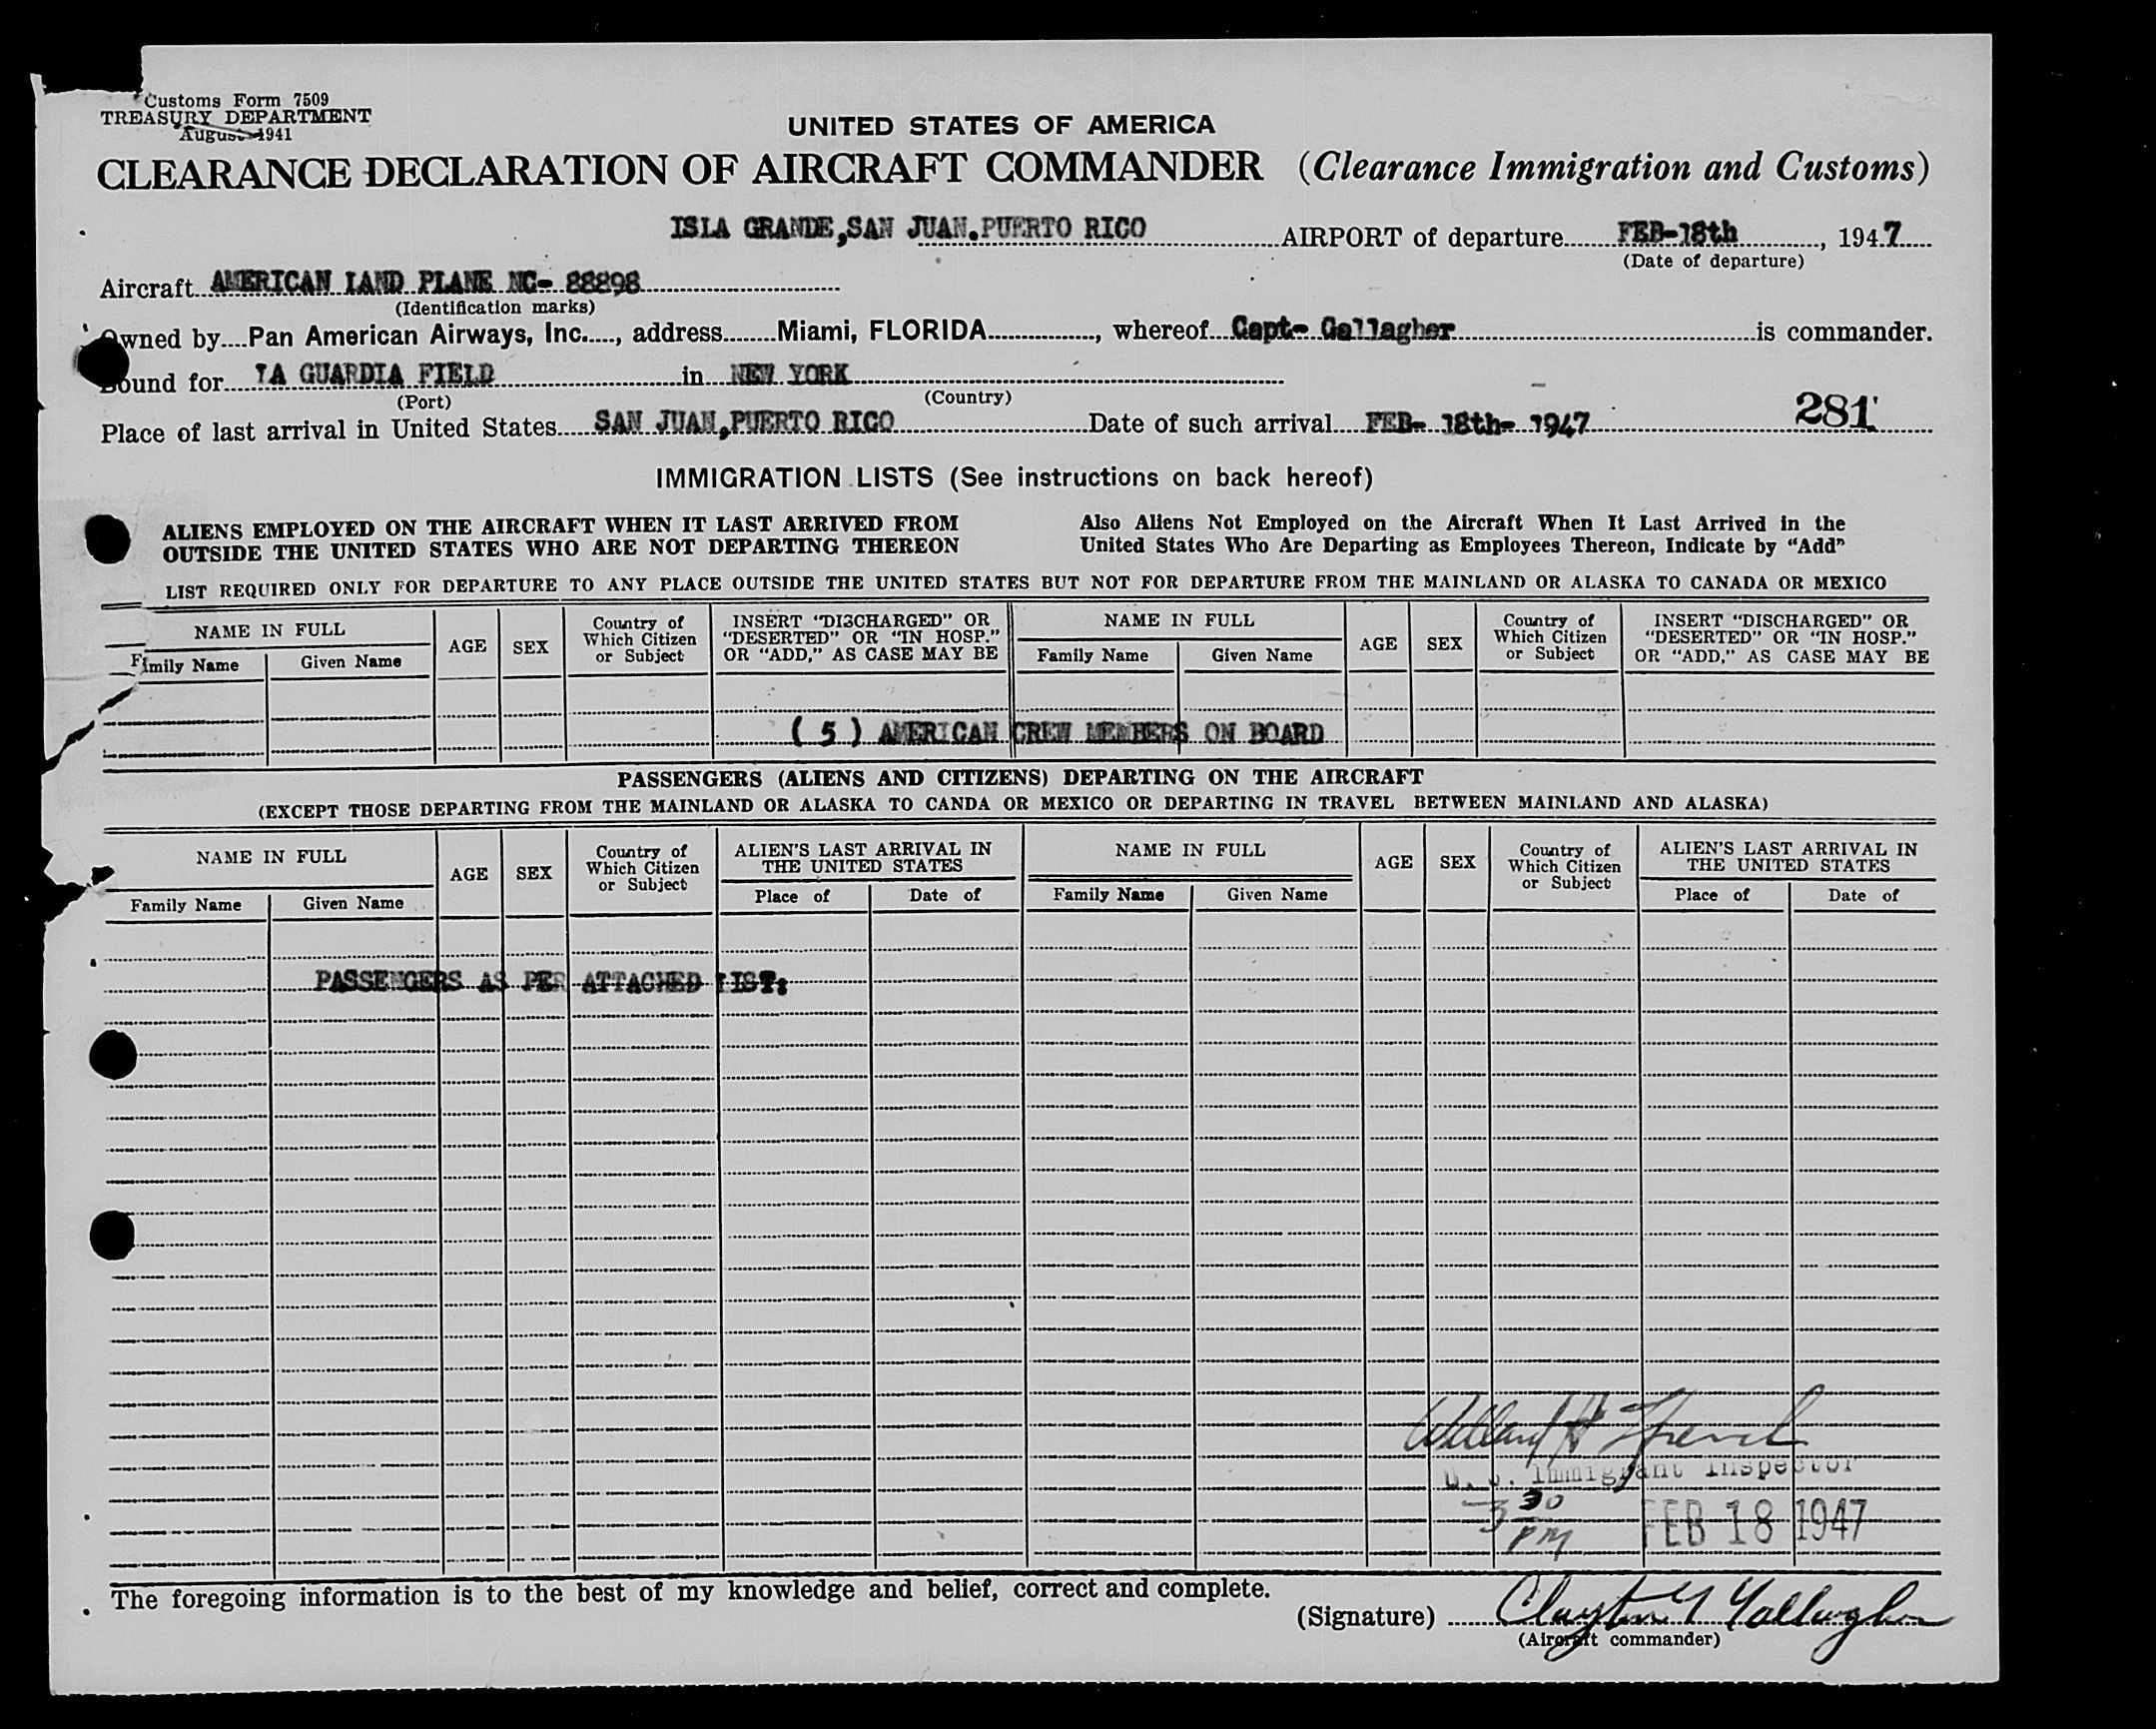 Customs Form 7509
TREASURY DEPARTMENT
August 1941
UNITED STATES OF AMERICA
CLEARANCE DECLARATION OF AIRCRAFT COMMANDER (Clearance Immigration and Customs)
ISLA GRANDE,SAN JUAN.PUERTO RICO AIRPORT of departure FEB-18th, 1947
(Date of departure)
Aircraft AMERICAN LAND PLANE NC- 88898
(Identification marks)
Owned by Pan American Airways, Inc., address Miami, FLORIDA, whereof Capt- Gallagher is commander.
Bound for LA GUARDIA FIELD in NEW YORK
(Port) (Country)
281
Place of last arrival in United States SAN JUAN,PUERTO RICO Date of such arrival FEB- 18th- 1947
IMMIGRATION LISTS (See instructions on back hereof)
ALIENS EMPLOYED ON THE AIRCRAFT WHEN IT LAST ARRIVED FROM
OUTSIDE THE UNITED STATES WHO ARE NOT DEPARTING THEREON
Also Aliens Not Employed on the Aircraft When It Last Arrived in the
United States Who Are Departing as Employees Thereon, Indicate by "Add"
LIST REQUIRED ONLY FOR DEPARTURE TO ANY PLACE OUTSIDE THE UNITED STATES BUT NOT FOR DEPARTURE FROM THE MAINLAND OR ALASKA TO CANADA OR MEXICO
NAME IN FULL
Family Name Given Name
AGE
SEX
Country of
Which Citizen
or Subject
INSERT "DISCHARGED" OR
"DESERTED" OR "IN HOSP."
OR "ADD," AS CASE MAY BE
NAME IN FULL
Family Name Given Name
AGE
SEX
Country of
Which Citizen
or Subject
INSERT "DISCHARGED" OR
"DESERTED" OR "IN HOSP."
OR "ADD," AS CASE MAY BE
( 5 ) AMERICAN CREW MEMBERS ON BOARD
PASSENGERS (ALIENS AND CITIZENS) DEPARTING ON THE AIRCRAFT
(EXCEPT THOSE DEPARTING FROM THE MAINLAND OR ALASKA TO CANDA OR MEXICO OR DEPARTING IN TRAVEL BETWEEN MAINLAND AND ALASKA)
NAME IN FULL
Family Name Given Name
AGE
SEX
Country of
Which Citizen
or Subject
ALIEN'S LAST ARRIVAL IN
THE UNITED STATES
Place of Date of
NAME IN FULL
Family Name Given Name
AGE
SEX
Country of
Which Citizen
or Subject
ALIEN'S LAST ARRIVAL IN
THE UNITED STATES
Place of Date of
PASSENGERS AS PER ATTACHED LIST:
Willard H French
U. S. Immigrant Inspector
3 30
PM
FEB 18 1947
The foregoing information is to the best of my knowledge and belief, correct and complete.
(Signature) Clayton Gallagher
(Aircraft commander)